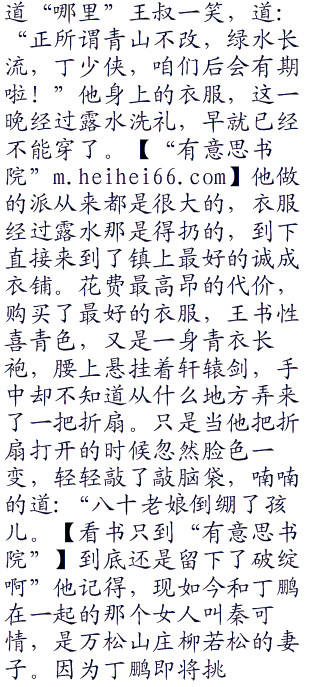 道“哪里”王叔一笑，道：
“正所谓青山不改，绿水长
流，丁少侠，咱们后会有期
啦！”他身上的衣服，这一
晚经过露水洗礼，早就已经
不能穿了。【“有意思书
院”m.heihei66.com】他做
的派从来都是很大的，衣服
经过露水那是得扔的，到下
直接来到了镇上最好的诚成
衣铺。花费最高昂的代价，
购买了最好的衣服，王书性
喜青色，又是一身青衣长
袍，腰上悬挂着轩辕剑，手
中却不知道从什么地方弄来
了一把折扇。只是当他把折
扇打开的时候忽然脸色一
变，轻轻敲了敲脑袋，喃喃
的道：“八十老娘倒绷了孩
儿。【看书只到“有意思书
院”】到底还是留下了破绽
啊”他记得，现如今和丁鹏
在一起的那个女人叫秦可
情，是万松山庄柳若松的妻
子。因为丁鹏即将挑